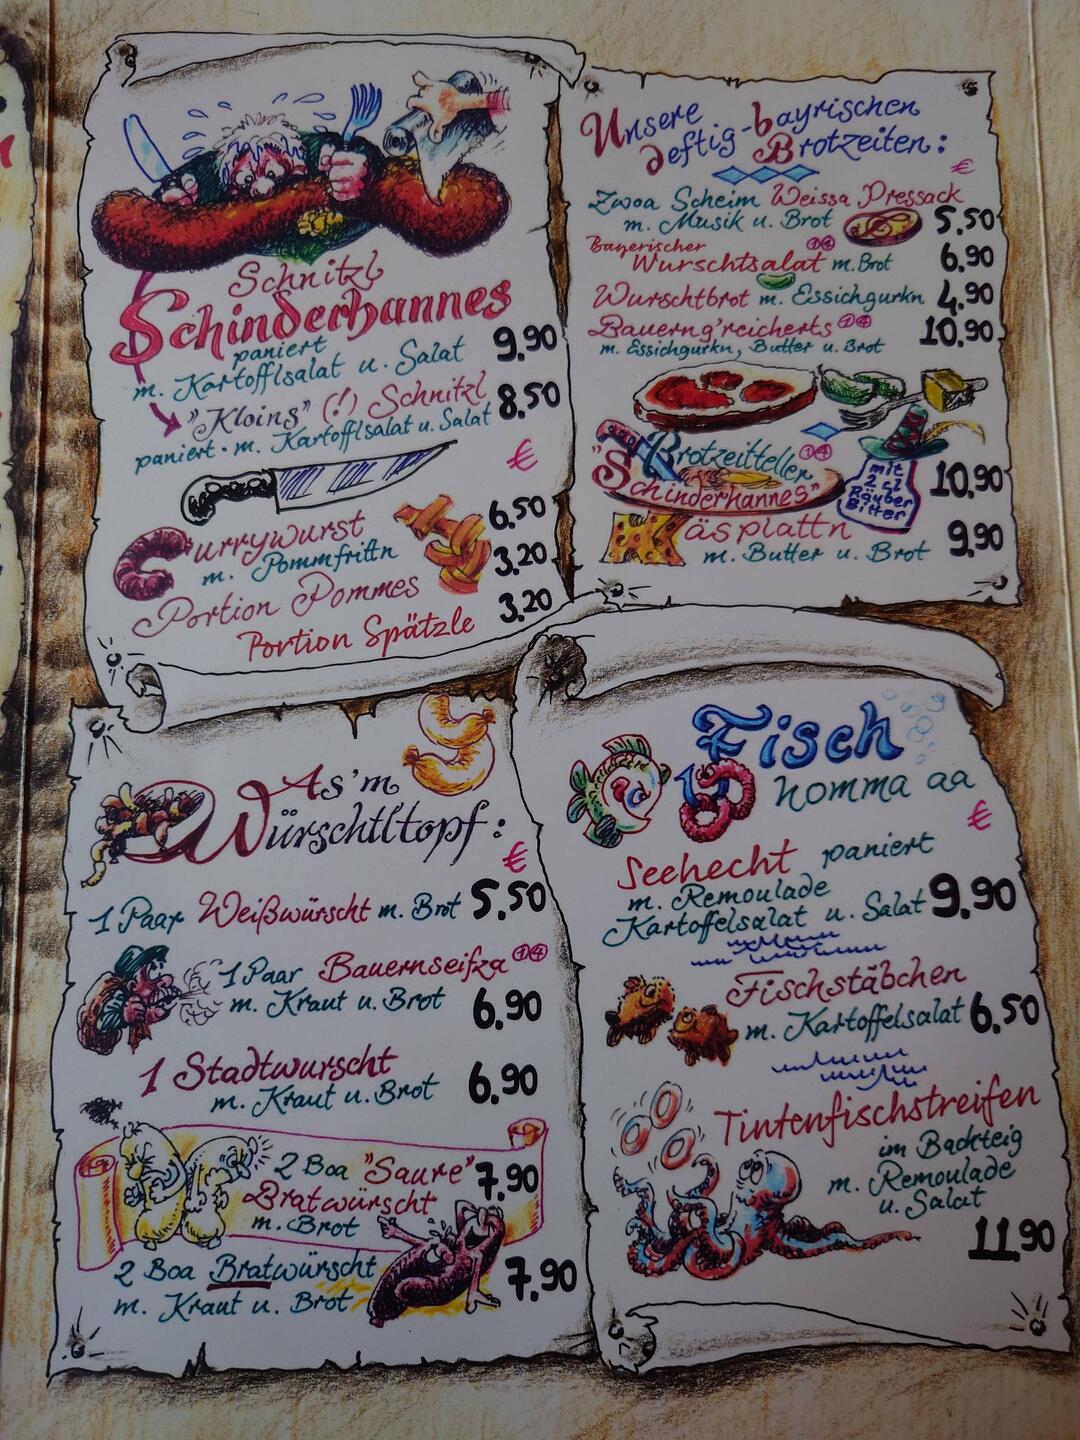 Schnitzl
Schinderhannes
paniert
m. Kartofflsalat u. Salat 9.90
"Kloins" (!) Schnitzl
paniert · m. Kartofflsalat u. Salat 8.50
€
Currywurst
m. Pommfrittn 6.50
Portion Pommes 3.20
Portion Spätzle 3.20
Unsere
deftig-bayrischen
Brotzeiten:
€
Zwoa Scheim Weissa Pressack
m. Musik u. Brot 5.50
Bayerischer
Wurschtsalat ①④ m. Brot 6.90
Wurschtbrot m. Essichgurkn 4.90
Bauerng'reicherts ①④ 10.90
m. Essichgurkn, Butter u. Brot
Brotzeitteller ①④
"Schinderhannes" 10.90
mit
2 cl
Räuber
Bitter
Käsplattn
m. Butter u. Brot 9.90
As'm
Würschtltopf:
€
1 Paar Weißwürscht m. Brot 5.50
1 Paar Bauernseifza ①④
m. Kraut u. Brot 6.90
1 Stadtwurscht
m. Kraut u. Brot 6.90
2 Boa "Saure" 7.90
Bratwürscht
m. Brot
2 Boa Bratwürscht
m. Kraut u. Brot 7.90
Fisch
homma aa
€
Seehecht paniert
m. Remoulade
Kartoffelsalat u. Salat 9.90
Fischstäbchen
m. Kartoffelsalat 6.50
Tintenfischstreifen
im Backteig
m. Remoulade
u. Salat
11.90